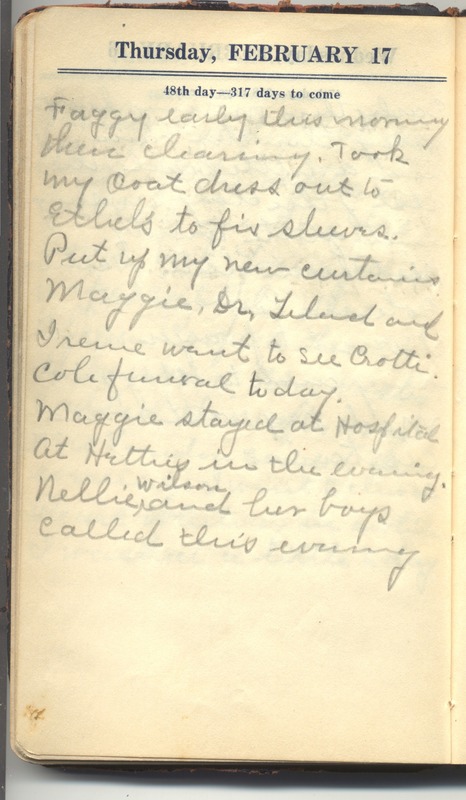 Thursday, FEBRUARY 17
48th day—317 days to come
Foggy early this morning
then clearing. Took
my Coat dress out to
Ethel's to fix sleeves.
Put up my new curtains
Maggie, Dr, Leland and
Irene want to see Crotti.
Cole funeral today.
Maggie stayed at Hospital
At Hetties in the evening.
Nellie Wilson and her boys
called this evening